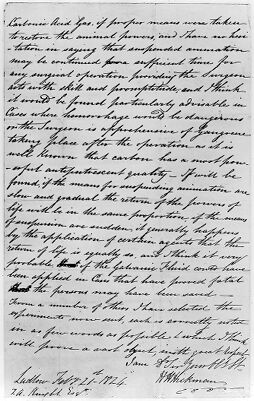 Carbonic Acid Gas, if proper means were taken
to restore the animal powers, and I have no hesi-
tation in saying that suspended animation
may be continued for a sufficient time for
any surgical operation providing the Surgeon
acts with skill and promptitude, and I think
it would be found particularly advisable in
Cases where hemorrhage would be dangerous
or the Surgeon is apprehensive of Gangrene
taking place after the operation as it is
well known that carbon has a most pow-
erful antiputrescent quality – It will be
found, if the means for suspending animation are
slow and gradual the return of the powers of
life will be in the same proportion, if the means
of suspension are sudden, it generally happens
by the application of certain agents that the
return of life is equally so, and I think it very
probable if the Galvanic Fluid could have
been applied in Cases that have proved fatal
the persons may have been saved –
From a number of others I have selected the
experiments now sent, each is correctly noted
in as few words as possible & which I think
will prove a vast object, with great respect
I am Dr Sir Yours &c
H H Hickman
Ludlow Feby 21st 1824.
T A Knight Esqr